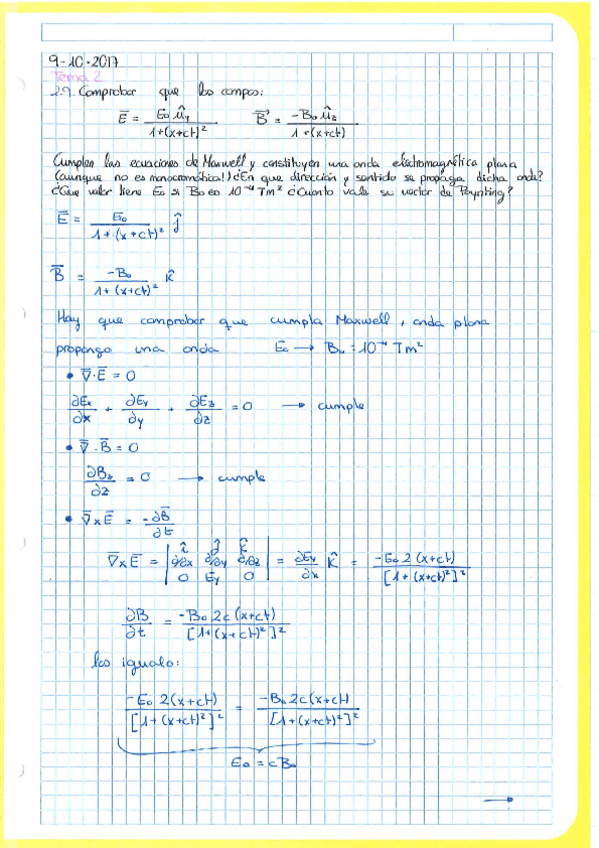 9-10-2017
Tema 2
2.9. Comprobar que los campos:
E̅ = E₀ û_y / 1+(x+ct)²    B⃗ = -B₀ û_z / 1+(x+ct)
Cumplen las ecuaciones de Maxwell y constituyen una onda electromagnética plana
(aunque no es monocromática!) ¿En que dirección y sentido se propaga dicha onda?
¿Que valor tiene E₀ si B₀ es 10⁻⁴ Tm² ¿Cuanto vale su vector de Poynting?
E̅ = E₀ / 1+(x+ct)² ĵ
B̅ = -B₀ / 1+(x+ct)² k̂
Hay que comprobar que cumpla Maxwell, onda plana
propongo una onda    E₀ → B₀ = 10⁻⁴ Tm²
• ∇̅·E̅ = 0
∂Ex/∂x + ∂Ey/∂y + ∂Ez/∂z = 0 → cumple
• ∇̅·B̅ = 0
∂Bz/∂z = 0 → cumple
• ∇̅×E̅ = -∂B̅/∂t
∇̅×E̅ = | î ĵ k̂ ; ∂/∂x ∂/∂y ∂/∂z ; 0 Ey 0 | = ∂Ey/∂x k̂ = -E₀ 2 (x+ct) / [1+(x+ct)²]²
∂B/∂t = -B₀ 2c (x+ct) / [1+(x+ct)²]²
los igualo:
-E₀ 2(x+ct) / [1+(x+ct)²]² = -B₀ 2c(x+ct) / [1+(x+ct)²]²
E₀ = cB₀
→